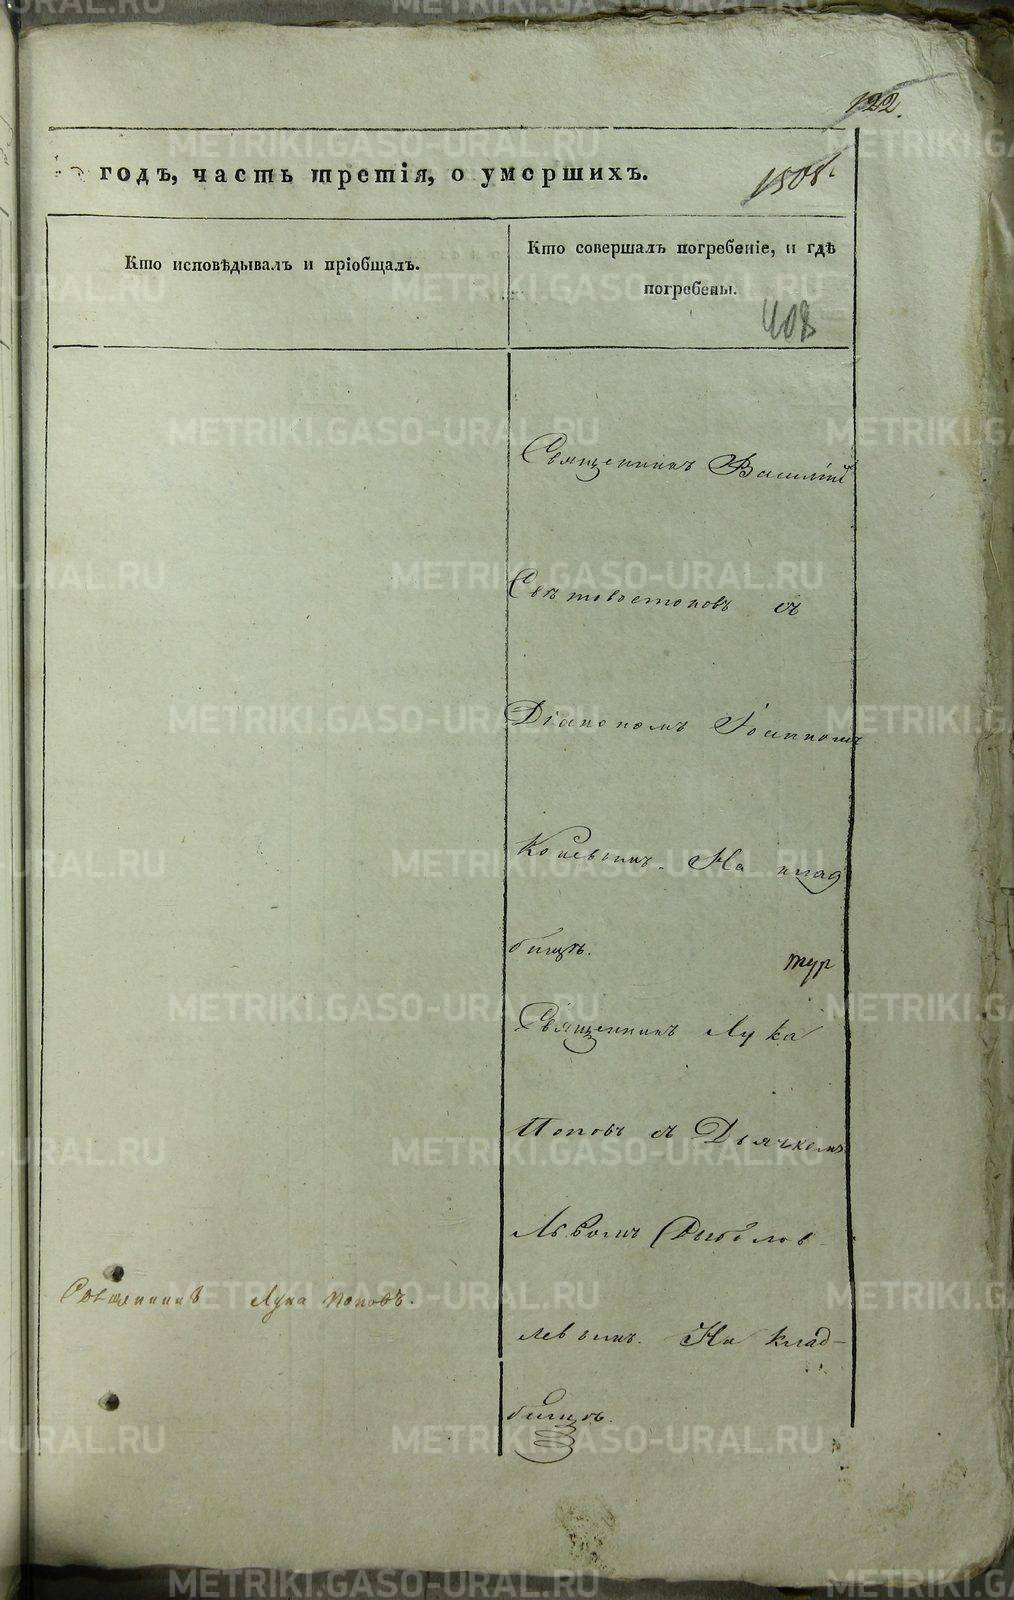 122.
годъ, часть третія, о умершихъ.
Кто исповѣдывалъ и пріобщалъ.
Кто совершалъ погребеніе, и гдѣ
погребены.
408
Священникъ Василій
Свѣтовостоковъ съ
Діакономъ Іоанномъ
На клад
бищѣ.
Священникъ Лука
Поповъ съ Дьячкомъ
Львомъ
Священникъ Лука Поповъ.
На клад-
бищѣ.
METRIKI.GASO-URAL.RU